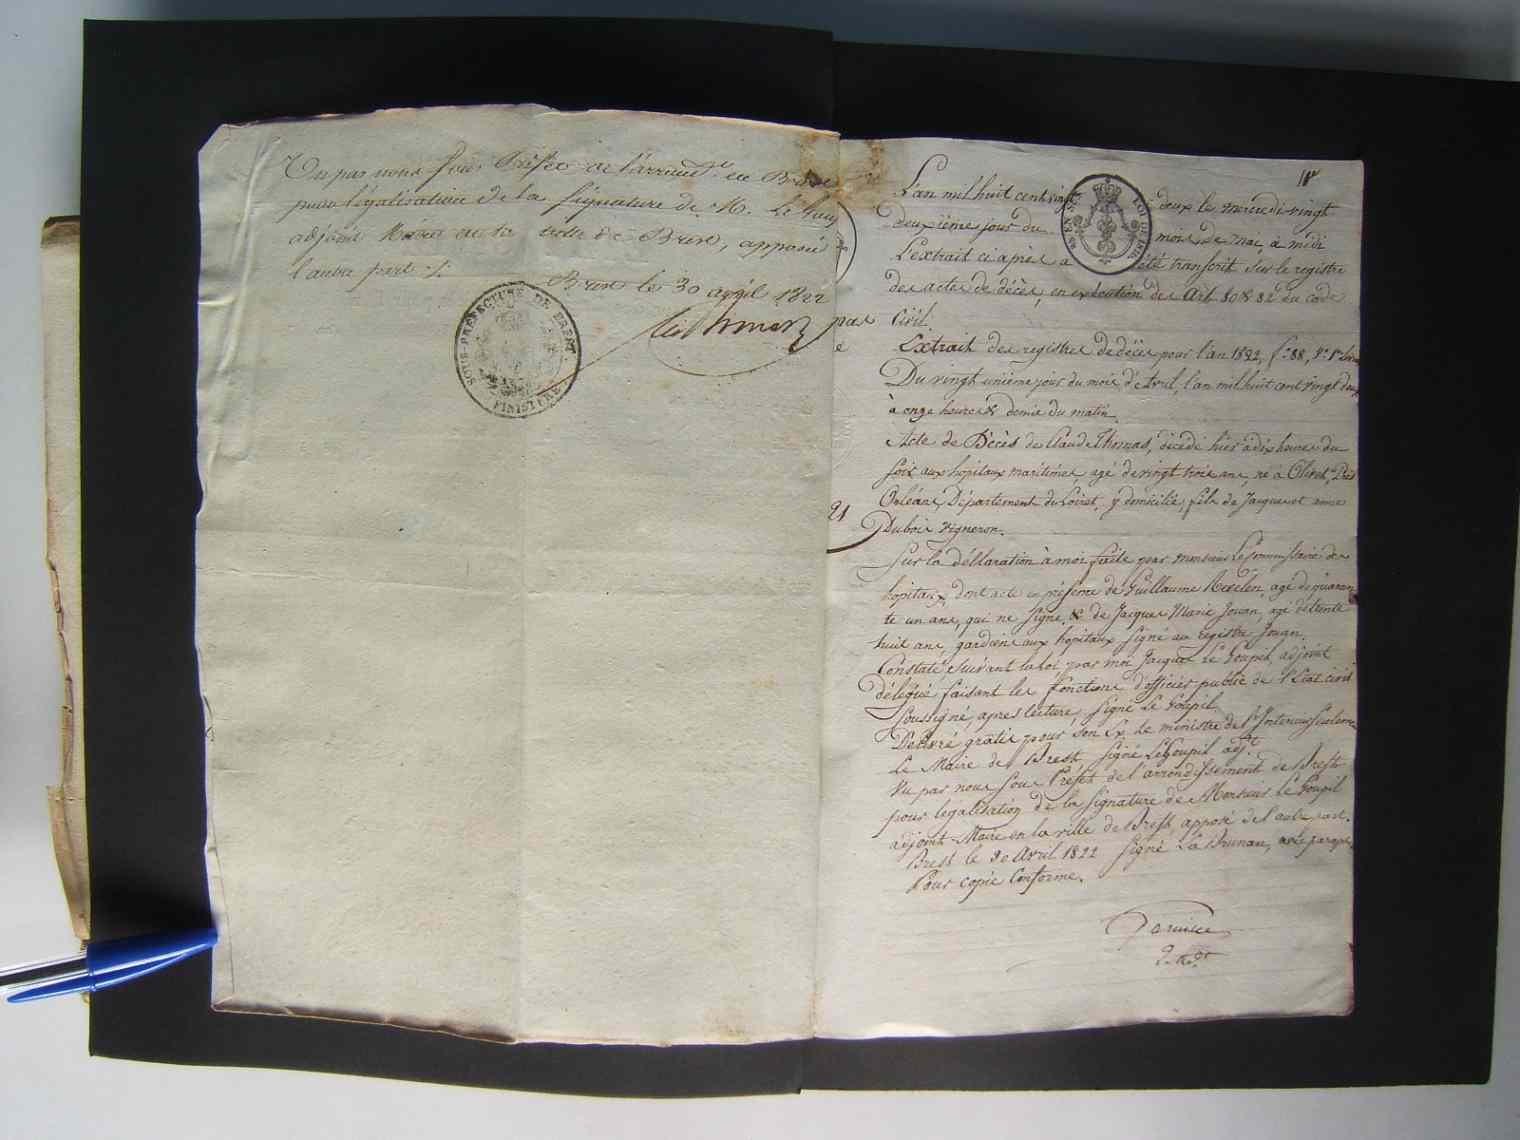 Vu par nous sous Préfet de l'arrond.t de Brest
pour légalisation de la signature de M. Le Goupil
adjoint Maire de la ville de Brest, apposée
l'autre part ./.
Brest le 30 avril 1822
SOUS-PRÉFECTURE DE BREST
FINISTÈRE
par
e
21
L'an mil huit cent vingt deux le mercredi vingt
deuxième jour du mois de mai, à midi
L'extrait ci après a été transcrit sur le registre
des actes de décès, en exécution des Art. 80 & 82 du code
Civil.
Extrait des registres de décès pour l'an 1822, f.° 88,
Du vingt unième jour du mois d'Avril, l'an mil huit cent vingt deux
à onze heures & demie du matin.
Acte de Décès de Claude Thomas, décédé hier à dix heures du
soir aux hopitaux maritimes, agé de vingt trois ans, né à Olivet, Près
Orléans, Département du Loiret, y domicilié, fils de Jacques et anne
Dubois vigneron.
Sur la déclaration à moi faite par monsieur Le Commissaire des
hopitaux, dont acte en présence de Guillaume agé de quaran
te un ans, qui ne signe, & de Jacques Marie Jouan, agé de trente
huit ans, gardiens aux hopitaux signé au registre Jouan.
Constaté, suivant la loi par moi Jacques Le Goupil, adjoint
délégué faisant les fonctions d'officier public de l'Etat civil
soussigné, après lecture, signé Le Goupil
Délivré gratis pour son Ex. Le ministre de l'Intérieur seulement
Le Maire de Brest signé LeGoupil adj.t
Vu par nous sous Préfet de l'arrondissement de Brest
pour légalisation de la signature de Monsieur Le Goupil
adjoint Maire en la ville de Brest, apposé de l'autre part.
Brest le 30 Avril 1822 signé avec paraphe,
Pour copie Conforme.